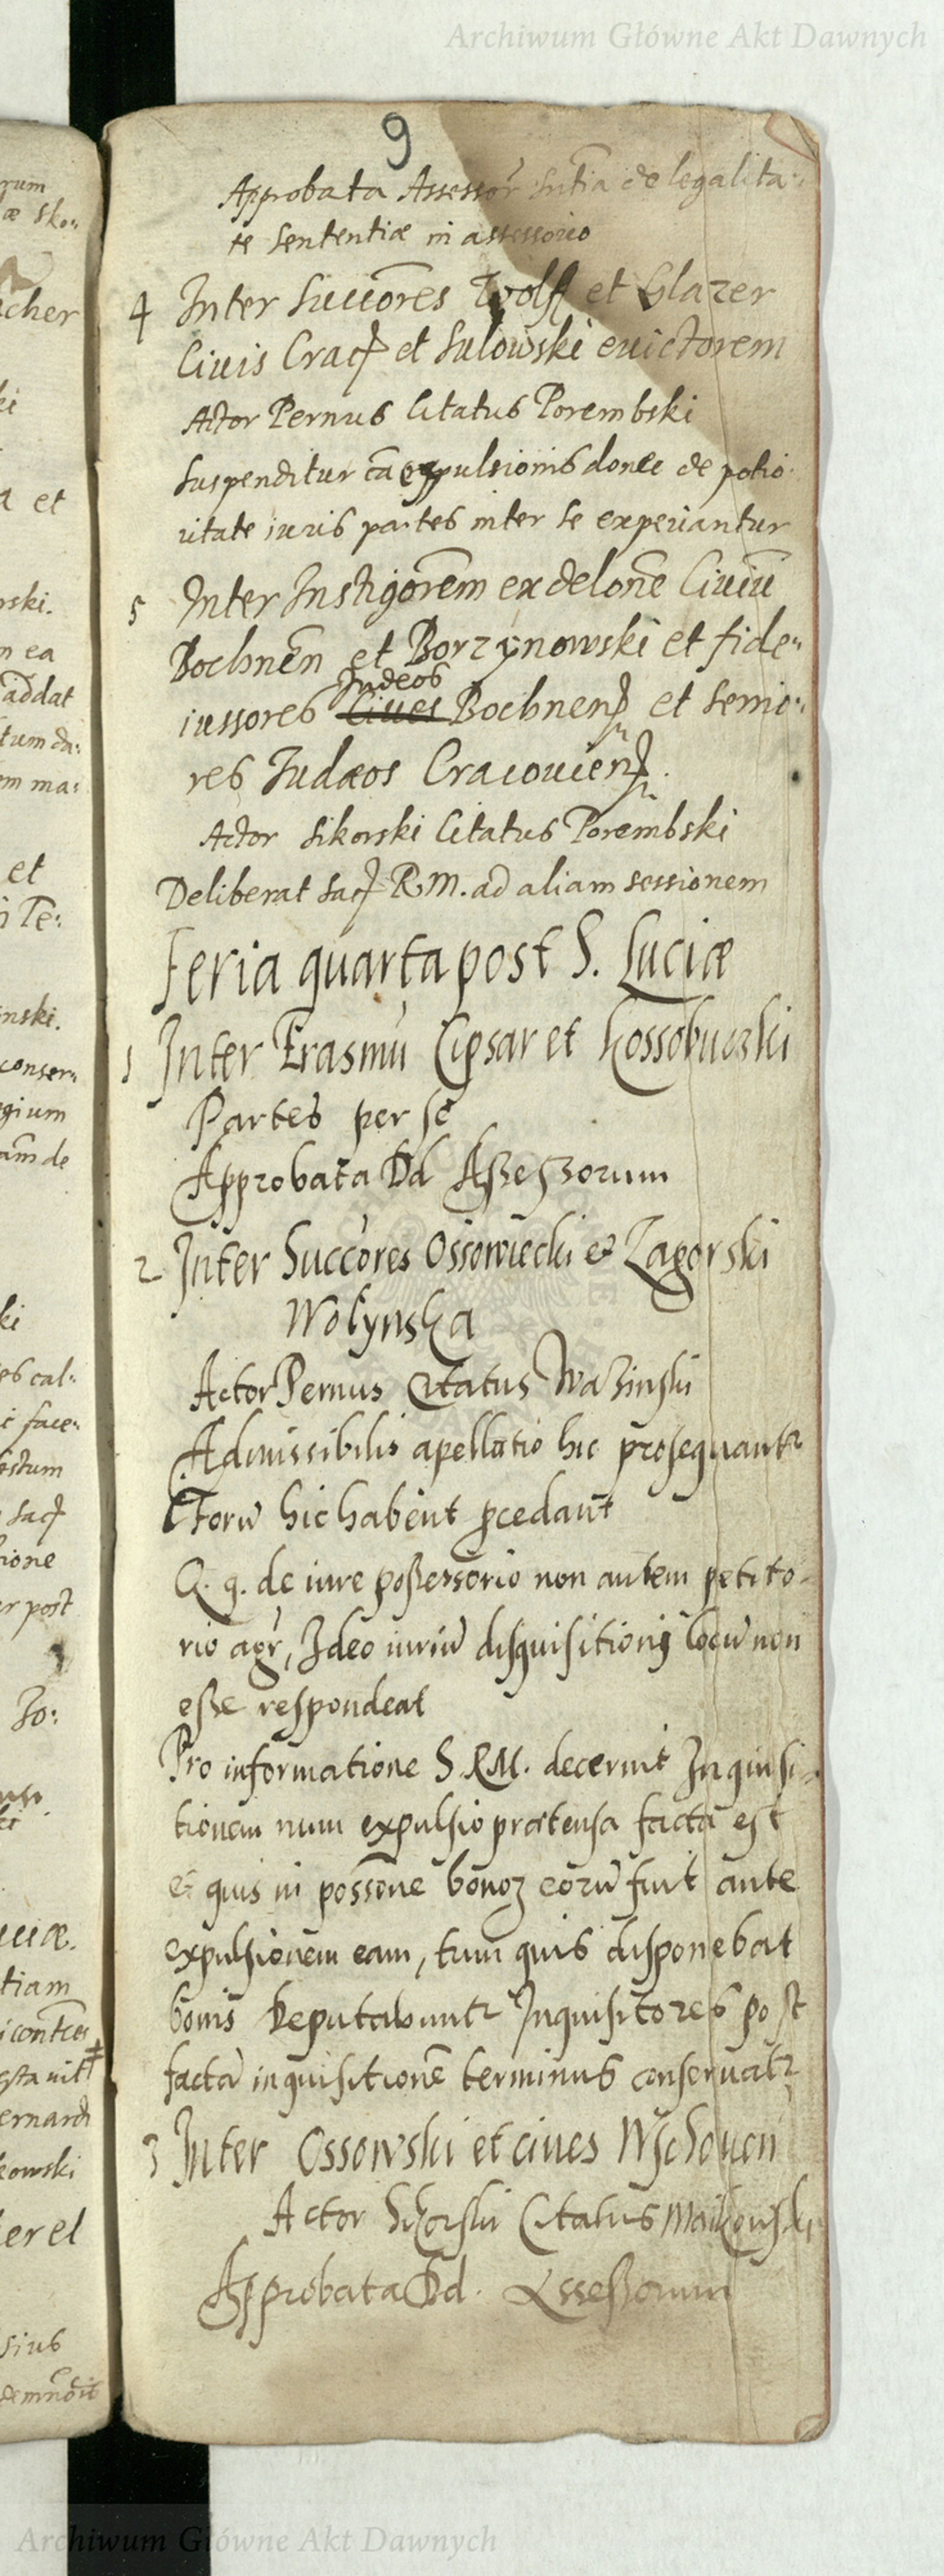 Archiwum Główne Akt Dawnych
9
Approbata Assessor Sntia de legalita:
te Sententiæ in assessorio
4 Inter Succores Wolff et Glazer
Civis Crac et Sulowski evictorem
Actor Pernus Citatus Porembski
Suspenditur ca expulsionis donec de potio
ritate iuris partes inter se experiantur
5 Inter Instigorem ex delone Civiu
Bochnen et Borzynowski et fide:
Judeos
iussores Cives Bochnen et Senio:
res Judæos Cracovien
Actor Sikorski Citatus Porembski
Deliberat Sac R.M. ad aliam sessionem
Feria quarta post S. Luciæ
1 Inter Erasmu Cipsar et Kossobuczki
Partes per se
Approbata Dd Assessorum
2 Inter Succores Ossowiecki et Zagorski
Wolynska
Actor Pernus Citatus Wazinski
Admissibilis apellatio hic prosequantr
Foru hic habent pcedant
Q. q. de iure possessorio non autem petito-
rio agr, Ideo iuriu disquisitionij locu non
esse respondeat
Pro informatione S RM. decernit Inquisi-
tionem num expulsio prætensa facta est
et quis in possone bonoz eoru fuit ante
expulsionem eam, tum quis disponebat
bonis Deputabuntr Inquisitores post
facta inquisitione terminus conservatr
3 Inter Ossowski et cives Wschoven
Actor Sikorski Citatus Maikowski
Approbata Dd. Assessorum
rum
æ Sko:
cher
ki
a et
rski.
n ea
addat
tum da:
em ma:
et
i Te:
nski.
conser:
gium
am de
ki
es cal:
face:
estum
Sac
ione
er post
Jo:
tiam
ernard
kowski
er el
sius
Archiwum Główne Akt Dawnych